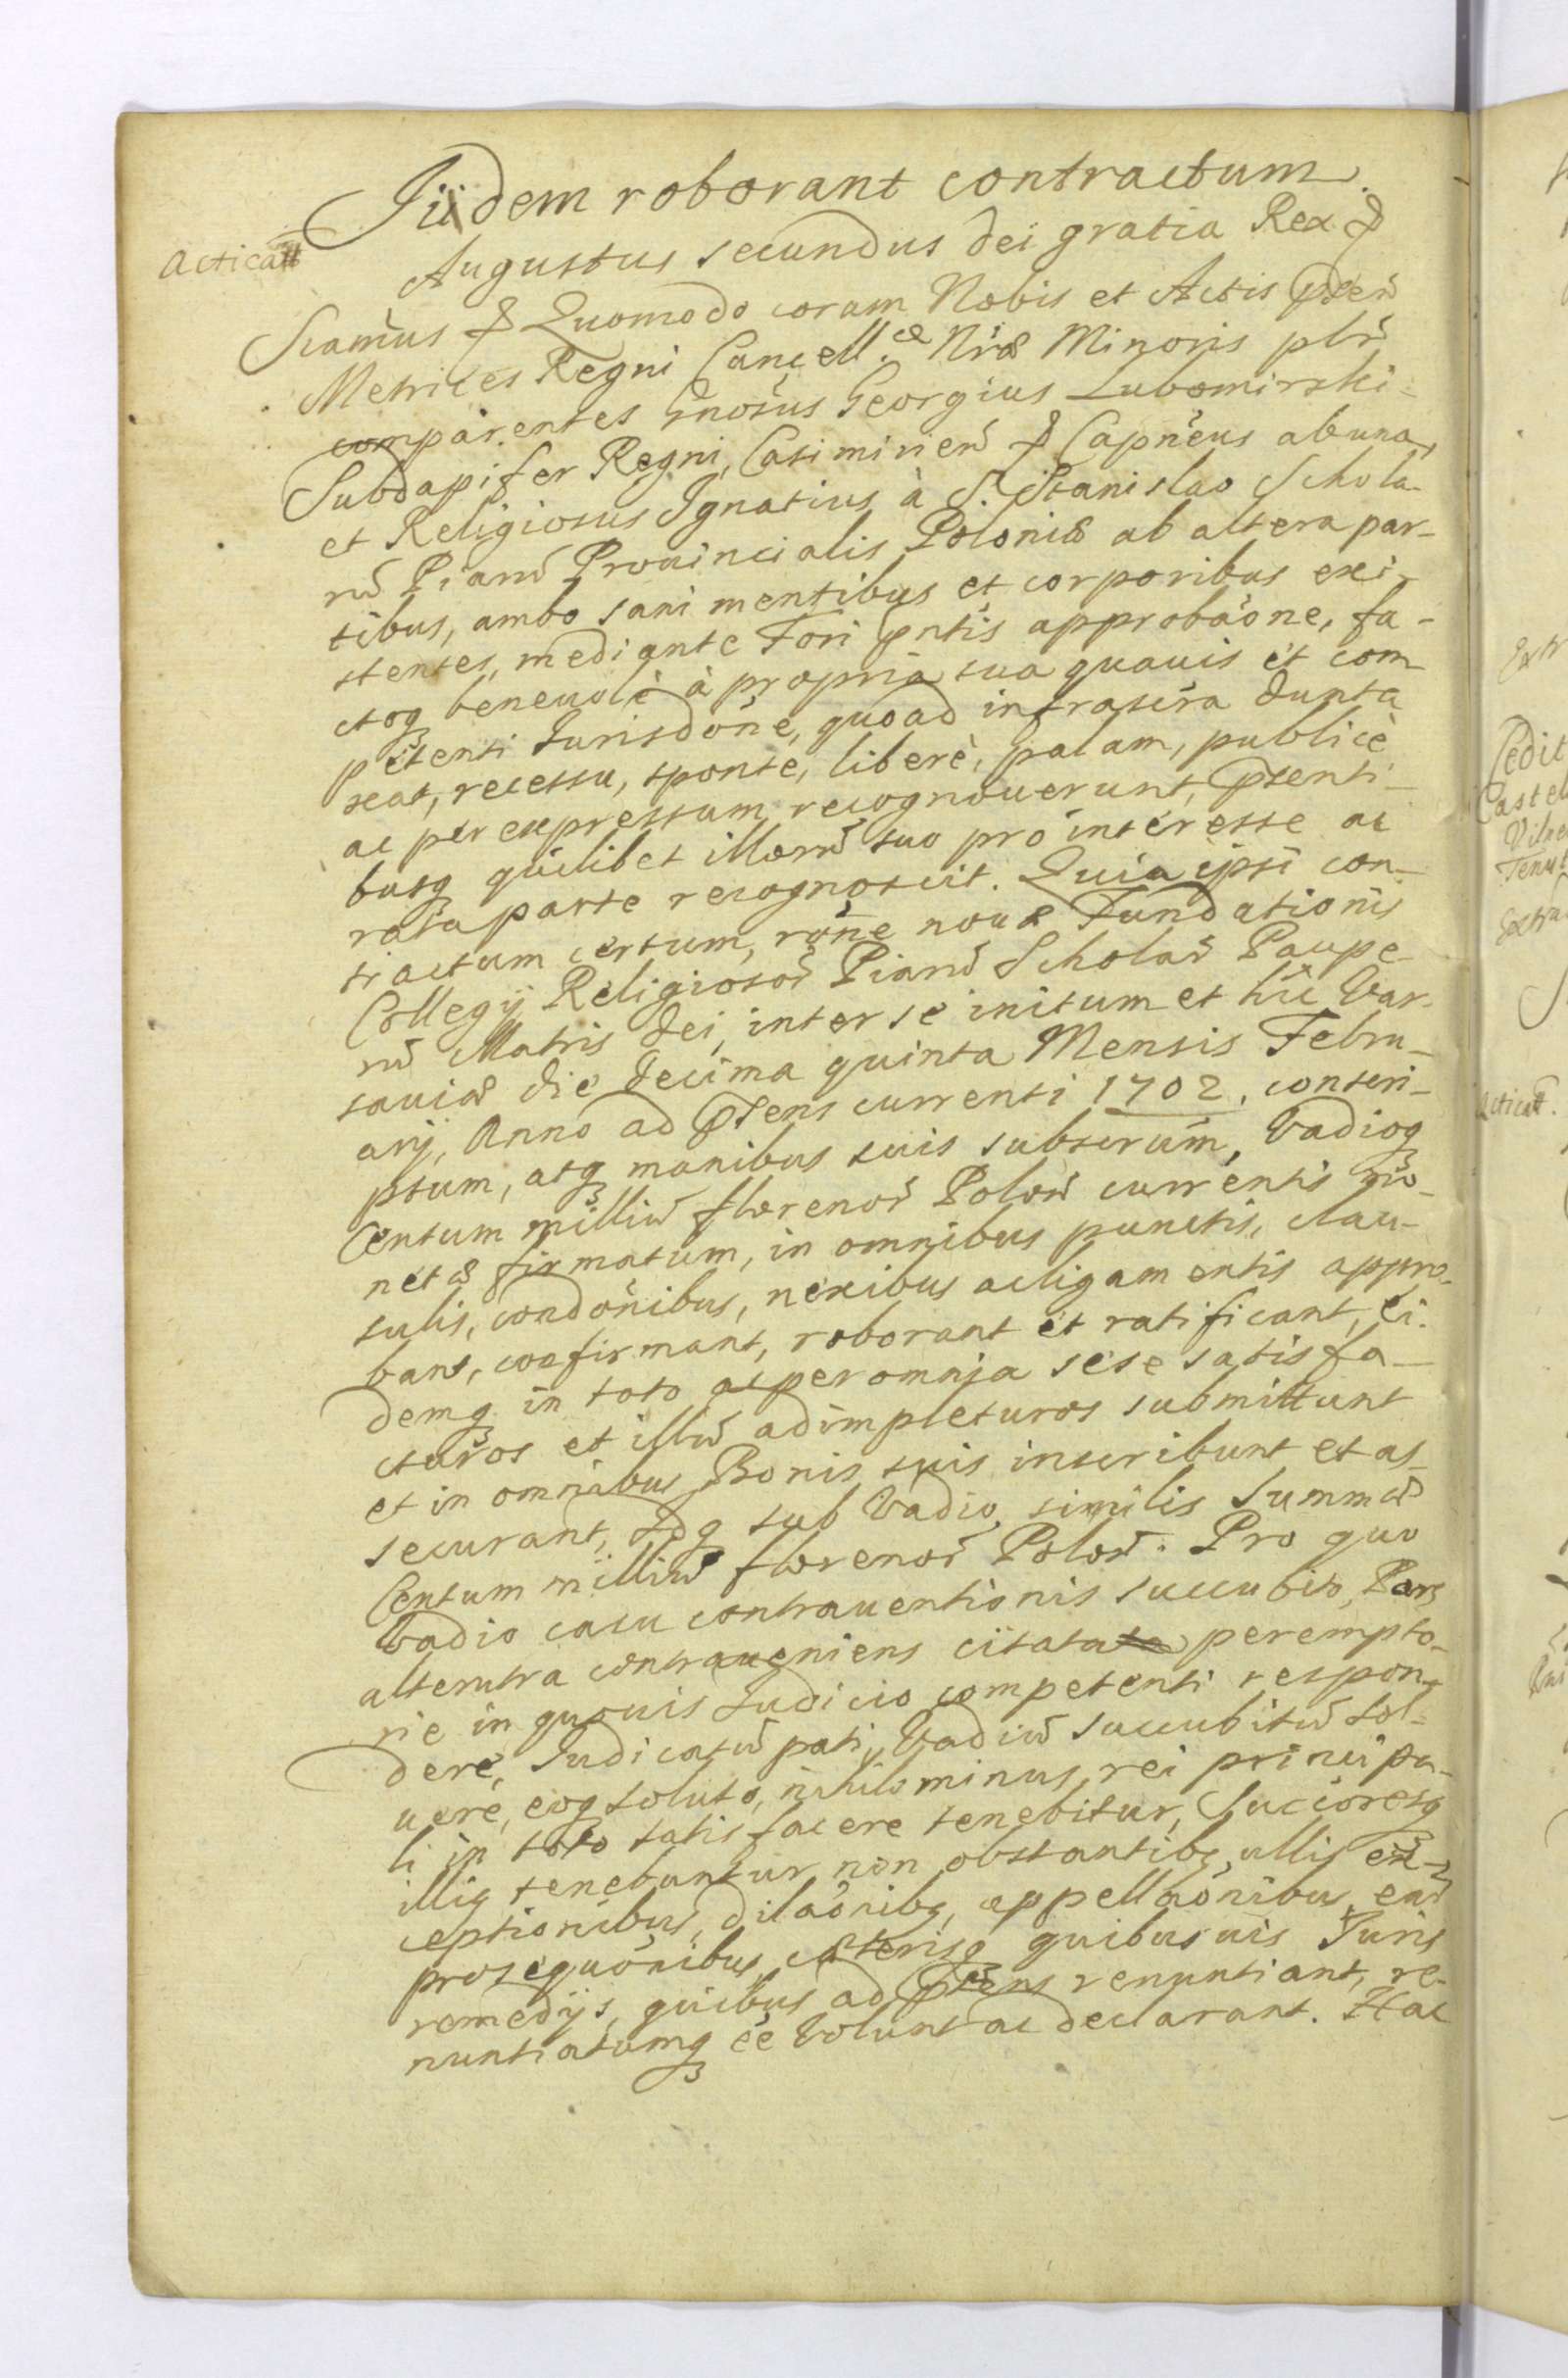 Iiidem roborant contractum.
Acticatt
Augustus secundus Dei gratia Rex &
Sciamus & Quomodo coram Nobis et Actis pñn
Metrices Regni Cancell.æ Nræ Minoris plr̃
comparentes Gnosus Georgius Lubomirski
Subdapifer Regni, Casimirien̄ & Capneus ab una,
et Religiosus Ignatius à S. Stanislao Schola-
rū Piarū Prouincialis Poloniæ ab altera par-
tibus, ambo sani mentibus et corporibus exi-
stentes, mediante Fori pntis approbaōne, fa-
ctoq beneuolè à propria sua quauis et com
petenti Iurisdone, quoad infrascra dunta
xat, recessu, sponte, liberè, palam, publicè
ac per expressum recognouerunt, psenti-
busq quilibet illorū suo pro interesse ac
rata parte recognoscit. Quia ipsi con-
tractum certum, rōne nouæ Fundationis
Collegij Religiosor̄ Piarū Scholar̄ Paupe-
rū Matris Dei, inter se initum et hic Var-
sauiæ die decima quinta Mensis Febru-
arij, Anno ad psens currenti 1702, conscri-
ptum, atq manibus suis subscrum, Vadioq
Centum milliū florenor̄ Polor̄ currentis mo-
netæ firmatum, in omnibus punctis, clau-
sulis, condonibus, nexibus ac ligamentis appro-
bant, confirmant, roborant et ratificant, ei-
demq in toto ac per omnia sese satisfa-
cturos et illū adimpleturos submittunt
et in omnibus Bonis suis inscribunt et as-
securant, Idq sub Vadio similis Summæ
Centum milliū florenor̄ Polor̄. Pro quo
Vadio casu contrauentionis succubito, Pars
alterutra contraueniens citata perempto-
rie in quouis Iudicio competenti respon-
dere, Iudicatū pati, Vadiū succubitū sol-
uere, eoq soluto, nihilominus rei principa-
li in toto satisfacere tenebitur, Succoresq
illiq tenebuntur non obstantibq ullis ex-
ceptionibus, dilaōnibq, appellaōnibus, earū
prosequōnibus cæterisq quibusuis Iuris
remedijs, quibus ad psens renuntiant, re-
nuntiatumq eē Volunt ac declarant. Hac
Extr
Cedit
Castel
Vilne
Tenut
Acticatt.